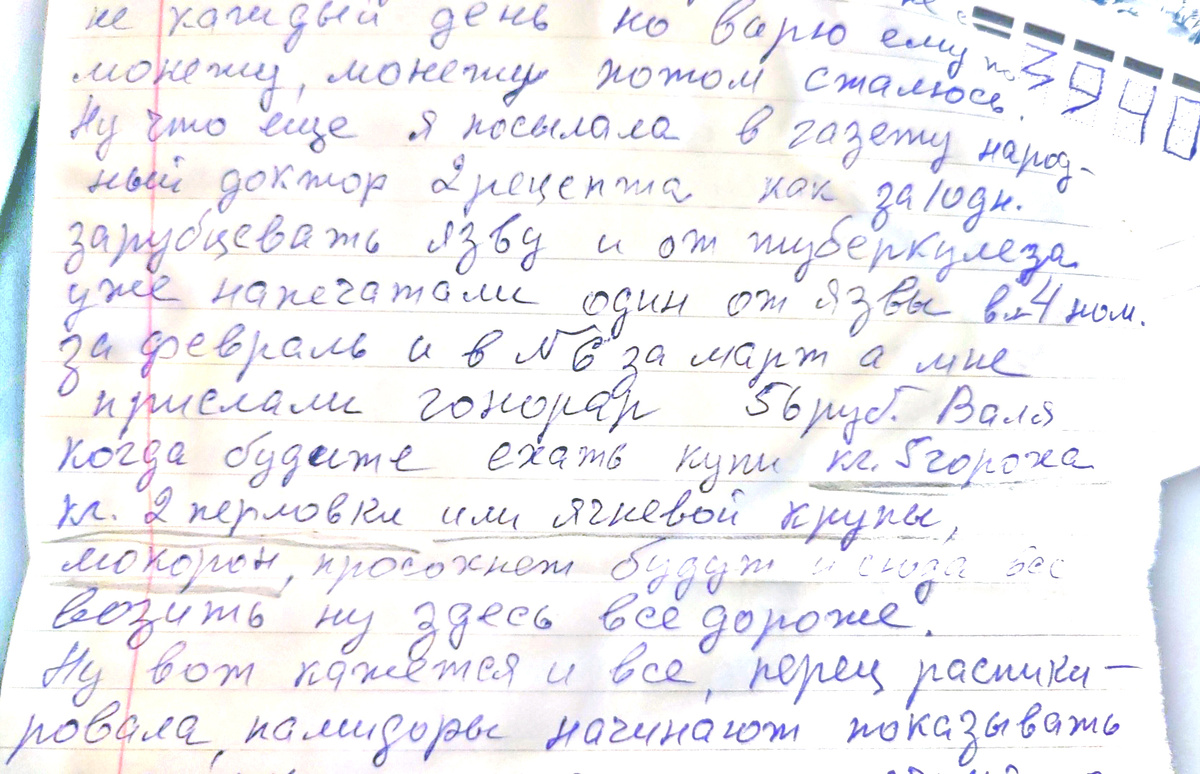 не каждый день но варю ему по
монежу, монежу потом сжалюсь.
3940
Ну что еще я посылала в газету народ-
ный доктор 2 рецепта как за 10 дн.
зарубцевать язву и от туберкулеза
уже напечатали один от язвы в 4 ном.
за февраль и в №6 за март а мне
прислали гонорар 56 руб. Валя
когда будите ехать купи кг. 5 гороха
кг. 2 перловки или ячневой крупы,
мокорон, просохнет будут и сюда все
возить ну здесь все дороже.
Ну вот кажется и все, перец распики-
ровала, памидоры начинают показывать